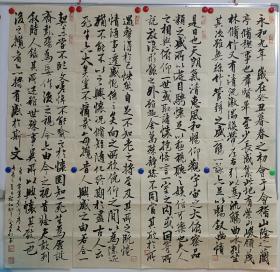 永和九年歲在癸丑暮春之初會于會稽山陰之蘭
亭脩禊事也羣賢畢至少長咸集此地有崇山峻領茂
林脩竹又有清流激湍映帶左右引以為流觴曲水列坐
其次雖無絲竹管弦之盛一觴一詠亦足以暢敘幽情
是日也天朗氣清惠風和暢仰觀宇宙之大俯察品
類之盛所以遊目騁懷足以極視聽之娛信可樂也夫人
之相與俯仰一世或取諸懷抱悟言一室之內或因寄所
託放浪形骸之外雖趣舍萬殊靜躁不同當其欣於所
遇暫得於己快然自足不知老之將至及其所之既惓
情隨事遷感慨係之矣向之所欣俛仰之間以為陳迹
猶不能不以之興懷況脩短隨化終期於盡古人云
死生亦大矣豈不痛哉每攬昔人興感之由若合一
契未嘗不臨文嗟悼不能喻之於懷固知一死生為虛誕
齊彭殤為妄作後之視今亦由今之視昔悲夫故列
敘時人錄其所述雖世殊事異所以興懷其致一也
後之攬者亦將有感於斯文